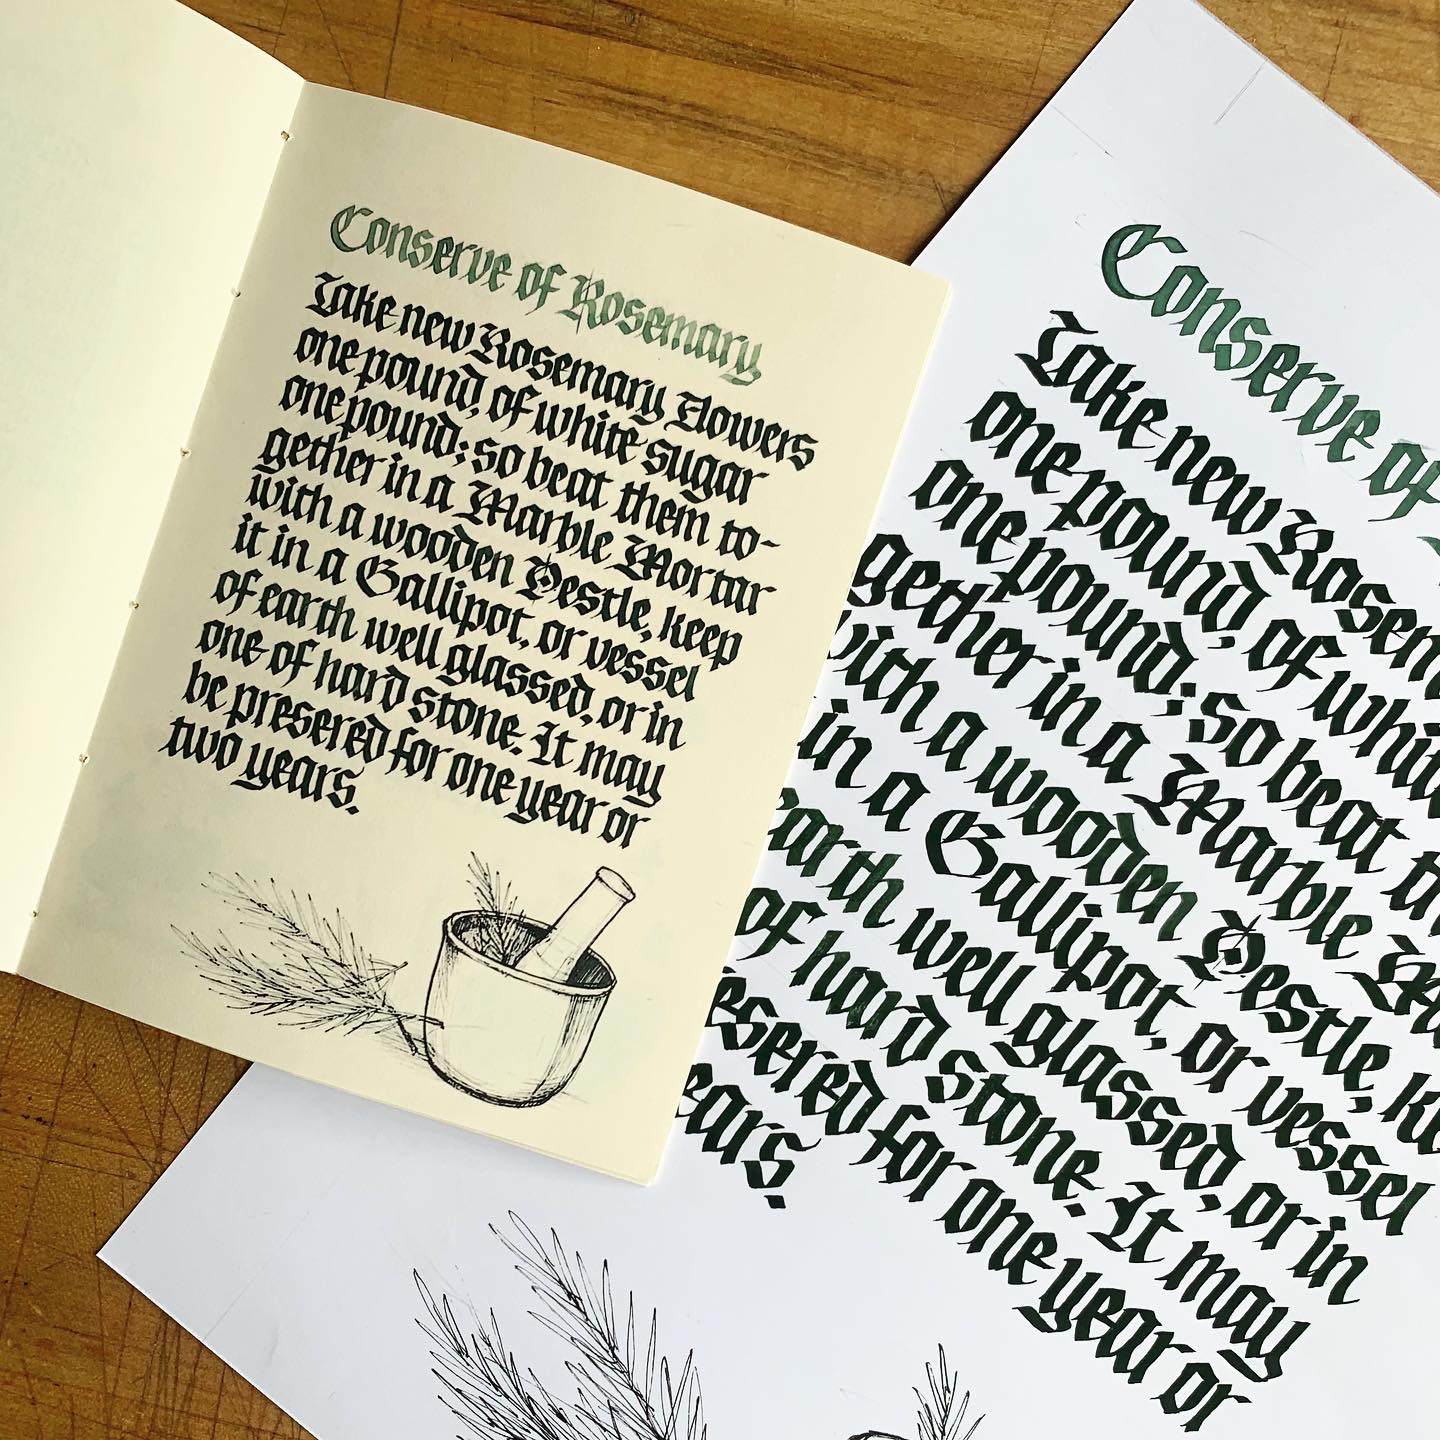 Conserve of Rosemary
Take new Rosemary Flowers
one pound, of white sugar
one pound; so beat them to-
gether in a Marble Mortar
with a wooden Pestle, keep
it in a Gallipot, or vessel
of earth well glassed, or in
one of hard stone. It may
be presered for one year or
two years.
Conserve of
Take new Rosem
one pound, of whit
one pound; so beat th
gether in a Marble M
with a wooden Pestle, k
in a Gallipot, or vessel
earth well glassed, or in
of hard stone. It may
esered for one year or
ears.